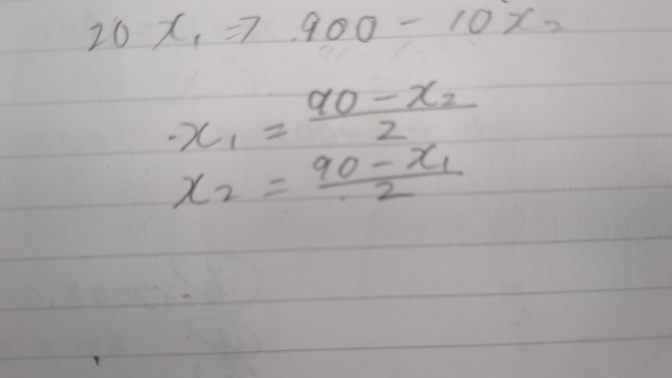 20 x₁ => 900 - 10x₂
x₁ = (90 - x₂)/2
x₂ = (90 - x₁)/2